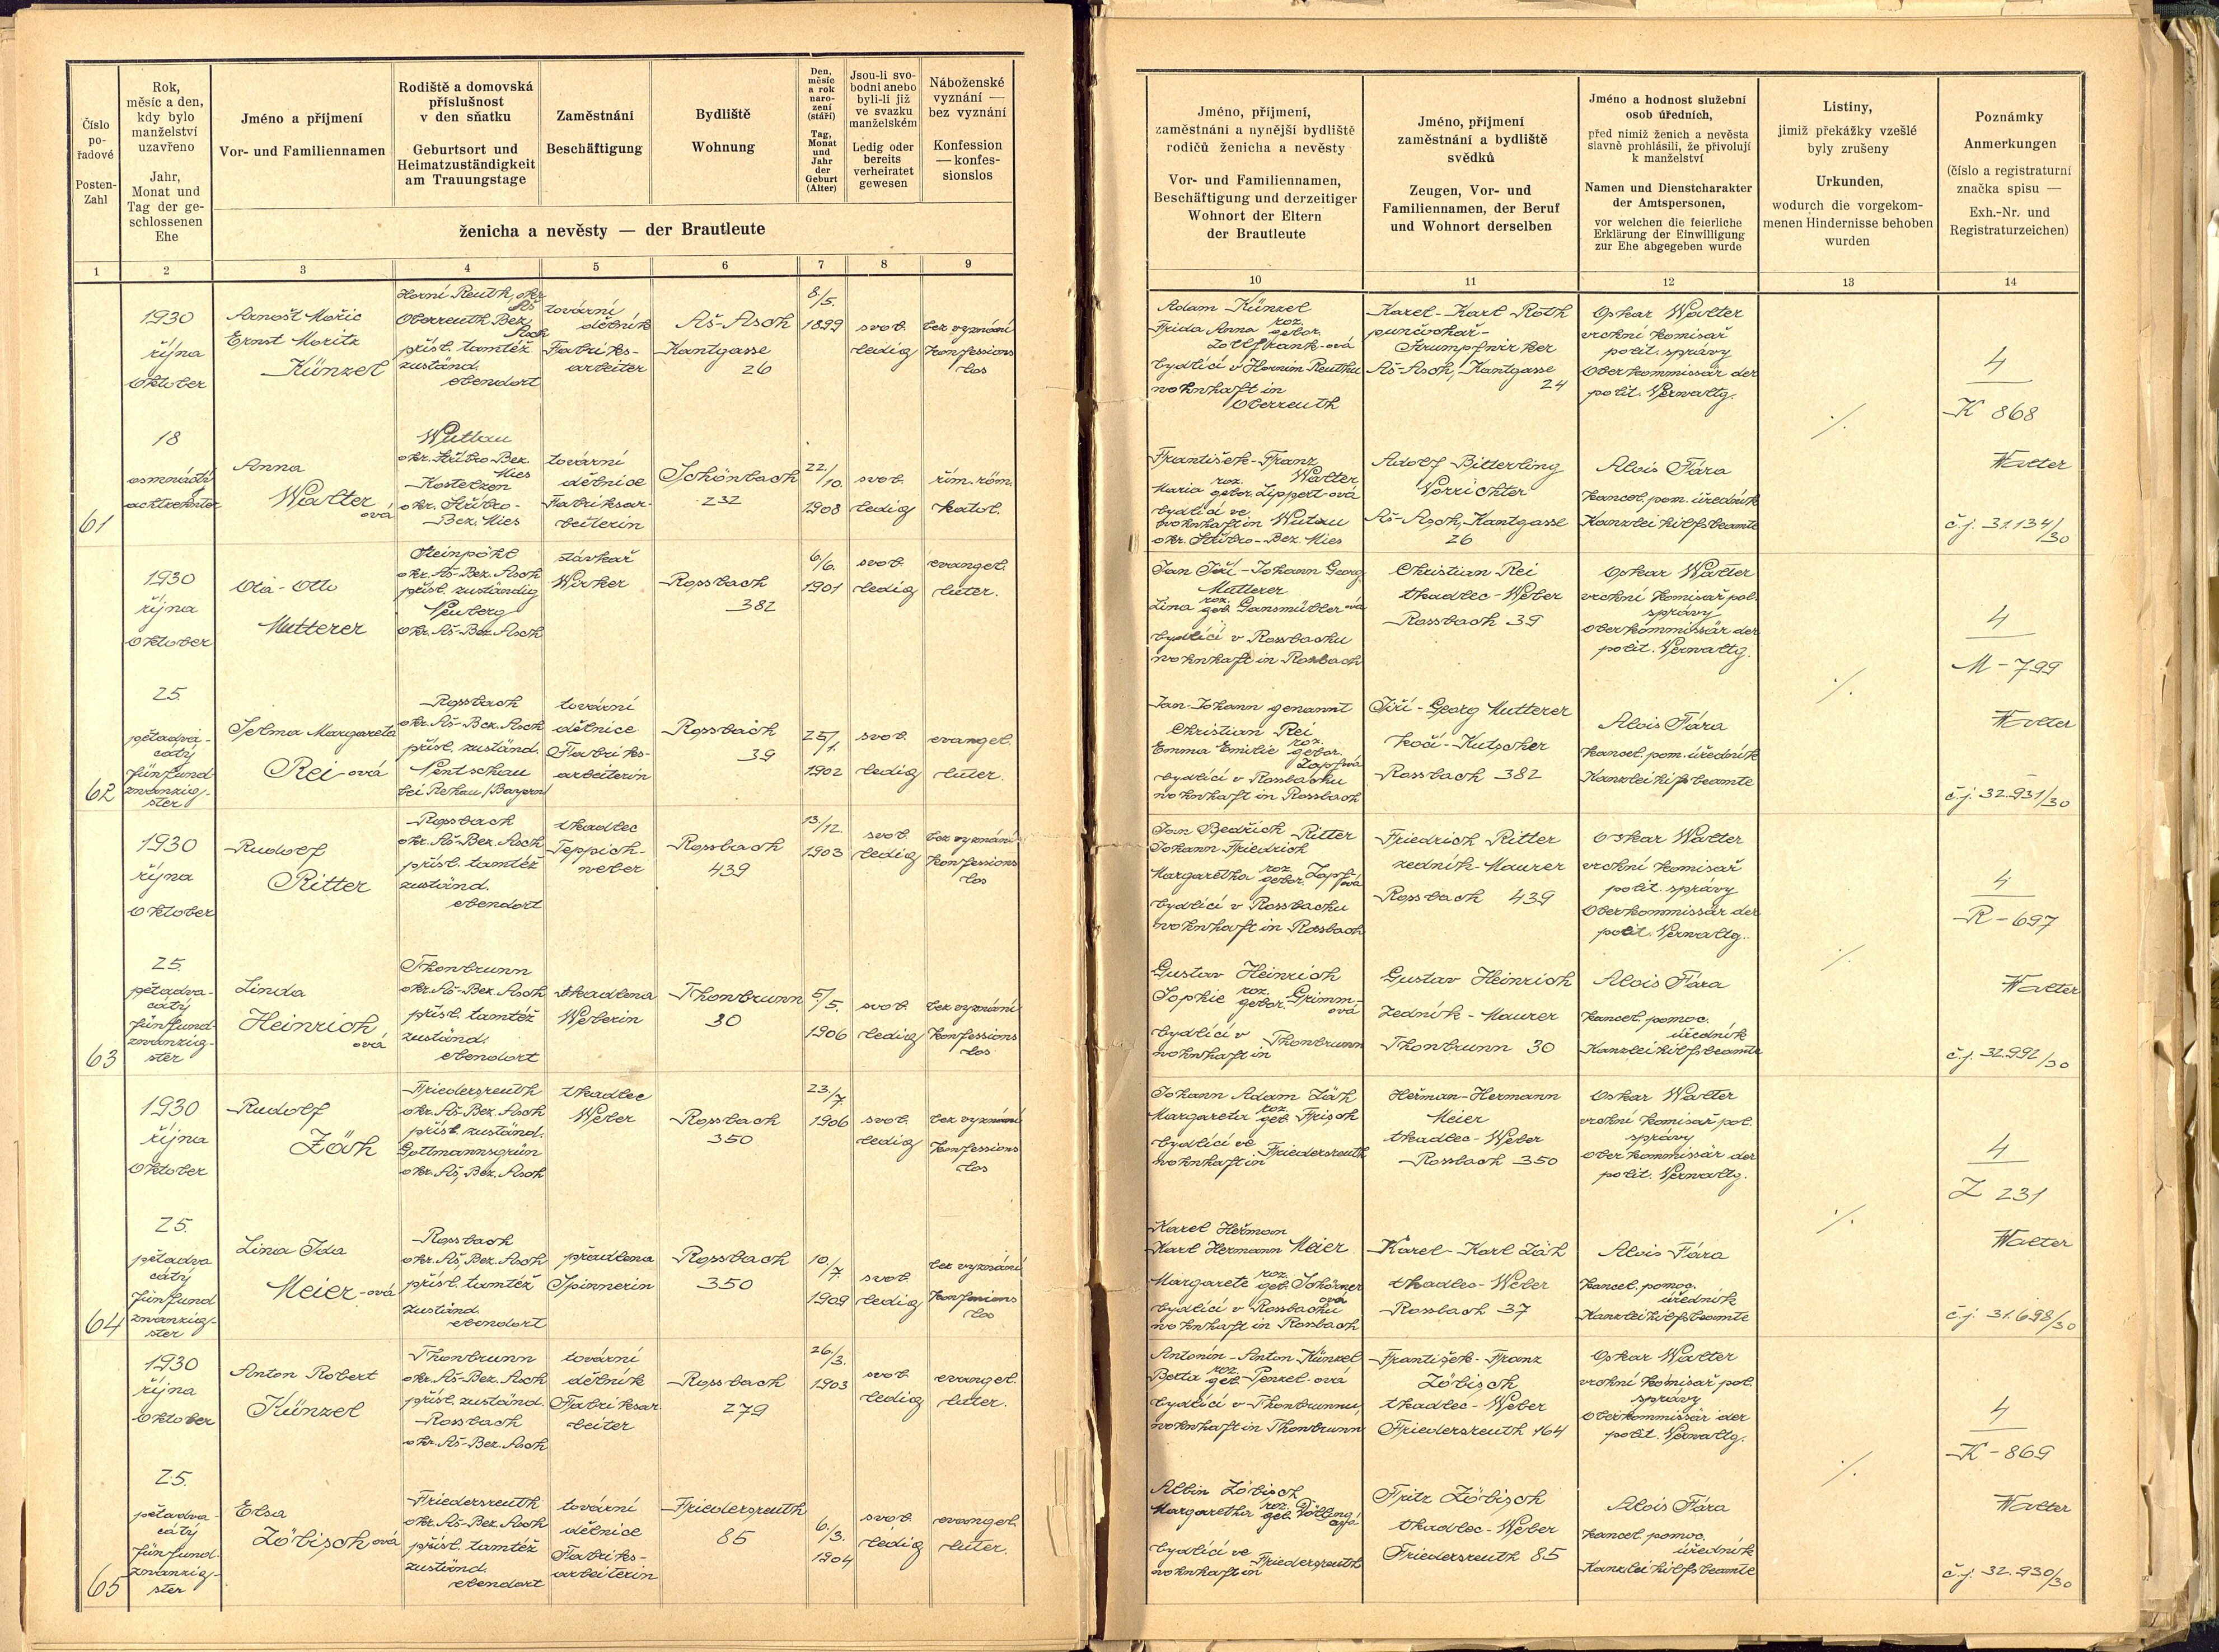 Číslo
po-
řadové
Posten-
Zahl
Rok,
měsíc a den,
kdy bylo
manželství
uzavřeno
Jahr,
Monat und
Tag der ge-
schlossenen
Ehe
Jméno a příjmení
Vor- und Familiennamen
Rodiště a domovská
příslušnost
v den sňatku
Geburtsort und
Heimatzuständigkeit
am Trauungstage
Zaměstnání
Beschäftigung
Bydliště
Wohnung
Den,
měsíc
a rok
naro-
zení
(stáří)
Tag,
Monat
und
Jahr
der
Geburt
(Alter)
Jsou-li svo-
bodni anebo
byli-li již
ve svazku
manželském
Ledig oder
bereits
verheiratet
gewesen
Náboženské
vyznání —
bez vyznání
Konfession
— konfes-
sionslos
ženicha a nevěsty — der Brautleute
1 2 3 4 5 6 7 8 9
Jméno, příjmení,
zaměstnání a nynější bydliště
rodičů ženicha a nevěsty
Vor- und Familiennamen,
Beschäftigung und derzeitiger
Wohnort der Eltern
der Brautleute
Jméno, příjmení
zaměstnání a bydliště
svědků
Zeugen, Vor- und
Familiennamen, der Beruf
und Wohnort derselben
Jméno a hodnost služební
osob úředních,
před nimiž ženich a nevěsta
slavně prohlásili, že přivolují
k manželství
Namen und Dienstcharakter
der Amtspersonen,
vor welchen die feierliche
Erklärung der Einwilligung
zur Ehe abgegeben wurde
Listiny,
jimiž překážky vzešlé
byly zrušeny
Urkunden,
wodurch die vorgekom-
menen Hindernisse behoben
wurden
Poznámky
Anmerkungen
(číslo a registraturní
značka spisu —
Exh.-Nr. und
Registraturzeichen)
10 11 12 13 14
61
1930
října
Oktober
18
osmnáctý
achtzehnter
Arnošt Mořic
Ernst Moritz
Künzel
Horní Reuth, okr.
Aš
Oberreuth Bez.
Asch
přísl. tamtéž
zuständ.
ebendort
tovární
dělník
Fabriks-
arbeiter
Aš-Asch
Kantgasse
26
8/5.
1899
svob.
ledig
bez vyznání
Konfessions
los
Adam Künzel
Frida Anna roz.
gebor.
Zollfrank-ová
bydlící v Horním Reuthu
wohnhaft in
Oberreuth
Karel-Karl Roth
punčochář-
Strumpfwirker
Aš-Asch, Kantgasse
24
Oskar Walter
vrchní komisař
polit. správy
Oberkommissär der
polit. Verwaltg.
./.
4
K 868
Anna
Walter
ová
Wuttau
okr. Stříbro-Bez.
Mies
Kostelzen
okr. Stříbro-
Bez. Mies
tovární
dělnice
Fabriksar-
beiterin
Schönbach
232
22/10.
1908
svob.
ledig
řím. röm.
katol.
František-Franz
Walter
Maria roz.
gebor. Lippert-ová
bydlící ve
wohnhaft in Wuttau
okr. Stříbro-Bez. Mies
Adolf Bitterling
Vorrichter
Aš-Asch, Kantgasse
26
Alois Fára
kancel. pom. úředník
Kanzleihilfsbeamte
Walter
č.j. 31.134/30
62
1930
října
Oktober
25.
pětadva-
cátý
fünfund
zwanzig-
ster
Ota-Otto
Mutterer
Steinpöhl
okr. Aš-Bez. Asch
přísl. zuständig
Neuberg
okr. Aš-Bez. Asch
stávkař
Wirker
Rossbach
382
6/6.
1901
svob.
ledig
evangel.
luter.
Jan Jiří-Johann Georg
Mutterer
Lina roz.
geb. Gansmüller ová
bydlící v Rossbachu
wohnhaft in Rossbach
Christian Rei
tkadlec-Weber
Rossbach 39
Oskar Walter
vrchní komisař pol.
správy
Oberkommissär der
polit. Verwaltg.
./.
4
M-799
Selma Margareta
Rei-ová
Rossbach
okr. Aš-Bez. Asch
přísl. zuständ.
Nentschau
bei Rehau/Bayern
tovární
dělnice
Fabriks-
arbeiterin
Rossbach
39
25/1.
1902
svob.
ledig
evangel.
luter.
Jan-Johann genannt
Christian Rei
Emma Emilie roz.
gebor.
Zapfová
bydlící v Rossbachu
wohnhaft in Rossbach
Jiří-Georg Mutterer
kočí-Kutscher
Rossbach 382
Alois Fára
kancel. pom. úředník
Kanzleihilfsbeamte
Walter
č.j. 32.931/30
63
1930
října
Oktober
25.
pětadva-
cátý
fünfund-
zwanzig-
ster
Rudolf
Ritter
Rossbach
okr. Aš-Bez. Asch
přísl. tamtéž
zuständ.
ebendort
tkadlec
Teppich-
weber
Rossbach
439
13/12.
1903
svob.
ledig
bez vyznání
Konfessions
los
Jan Bedřich Ritter
Johann Friedrich
Margaretha roz.
gebor. Zapfová
bydlící v Rossbachu
wohnhaft in Rossbach
Friedrich Ritter
zedník-Maurer
Rossbach 439
Oskar Walter
vrchní komisař
polit. správy
Oberkommissär der
polit. Verwaltg.
./.
4
R-697
Linda
Heinrich
ová
Thonbrunn
okr. Aš-Bez. Asch
přísl. tamtéž
zuständ.
ebendort
tkadlena
Weberin
Thonbrunn
30
5/5.
1906
svob.
ledig
bez vyznání
Konfessions
los
Gustav Heinrich
Sophie roz.
gebor. Grimm-
ová
bydlící v
wohnhaft in Thonbrunn
Gustav Heinrich
Zedník-Maurer
Thonbrunn 30
Alois Fára
kancel. pomoc.
úředník
Kanzleihilfsbeamte
Walter
č.j. 32.992/30
64
1930
října
Oktober
25.
pětadva
cátý
fünfund
zwanzig-
ster
Rudolf
Zäh
Friedersreuth
okr. Aš-Bez. Asch
přísl. zuständ.
Gottmannsgrün
okr. Aš, Bez. Asch
tkadlec
Weber
Rossbach
350
23./7
1906
svob.
ledig
bez vyznání
Konfessions
los
Johann Adam Zäh
Margareta roz.
geb. Frisch
bydlící ve
wohnhaft in Friedersreuth
Heřman-Hermann
Meier
tkadlec-Weber
Rossbach 350
Oskar Walter
vrchní komisař pol.
správy
Oberkommissär der
polit. Verwaltg.
./.
4
Z 231
Lina Ida
Meier-ová
Rossbach
okr. Aš, Bez. Asch
přísl. tamtéž
zuständ.
ebendort
přadlena
Spinnerin
Rossbach
350
10/7.
1909
svob.
ledig
bez vyznání
Konfessions
los
Karel Heřman
Karl Hermann Meier
Margarete roz.
geb. Schörner
ová
bydlící v Rossbachu
wohnhaft in Rossbach
Karel-Karl Zäh
tkadlec-Weber
Rossbach 37
Alois Fára
kancel. pomoc.
úředník
Kanzleihilfsbeamte
Walter
č.j. 31.698/30
65
1930
října
Oktober
25.
pětadva-
cátý
fünfund-
zwanzig-
ster
Anton Robert
Künzel
Thonbrunn
okr. Aš-Bez. Asch
přísl. zuständ.
Rossbach
okr. Aš-Bez. Asch
tovární
dělník
Fabriksar
beiter
Rossbach
279
26./3.
1903
svob.
ledig
evangel.
luter.
Antonín-Anton Künzel
Berta roz.
geb. Penzel-ová
bydlící v Thonbrunnu,
wohnhaft in Thonbrunn
František-Franz
Zöbisch
tkadlec-Weber
Friedersreuth 164
Oskar Walter
vrchní komisař pol.
správy
Oberkommissär der
polit. Verwaltg.
./.
4
K-869
Elsa
Zöbisch ová
Friedersreuth
okr. Aš-Bez. Asch
přísl. tamtéž
zuständ.
ebendort
tovární
dělnice
Fabriks-
arbeiterin
Friedersreuth
85
6/3.
1904
svob.
ledig
evangel.
luter.
Albin Zöbisch
Margaretha roz.
geb.
bydlící ve
wohnhaft in Friedersreuth
Fritz Zöbisch
tkadlec-Weber
Friedersreuth 85
Alois Fára
kancel. pomoc.
úředník
Kanzleihilfsbeamte
Walter
č.j. 32.930/30